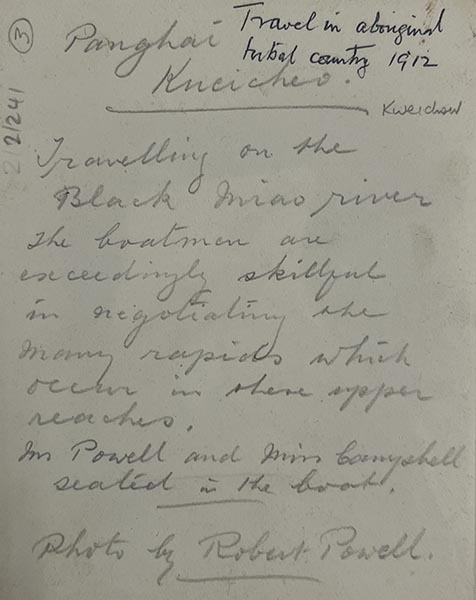 3
Travel in aboriginal
tribal country 1912
Panghai
Kueicheo.
Kweichow
2/241
Travelling on the
Black Miao river
The boatmen are
exceedingly skillful
in negotiating the
many rapids which
occur in these upper
reaches.
Mr Powell and Miss Campbell
seated in the boat.
Photo by Robert Powell.